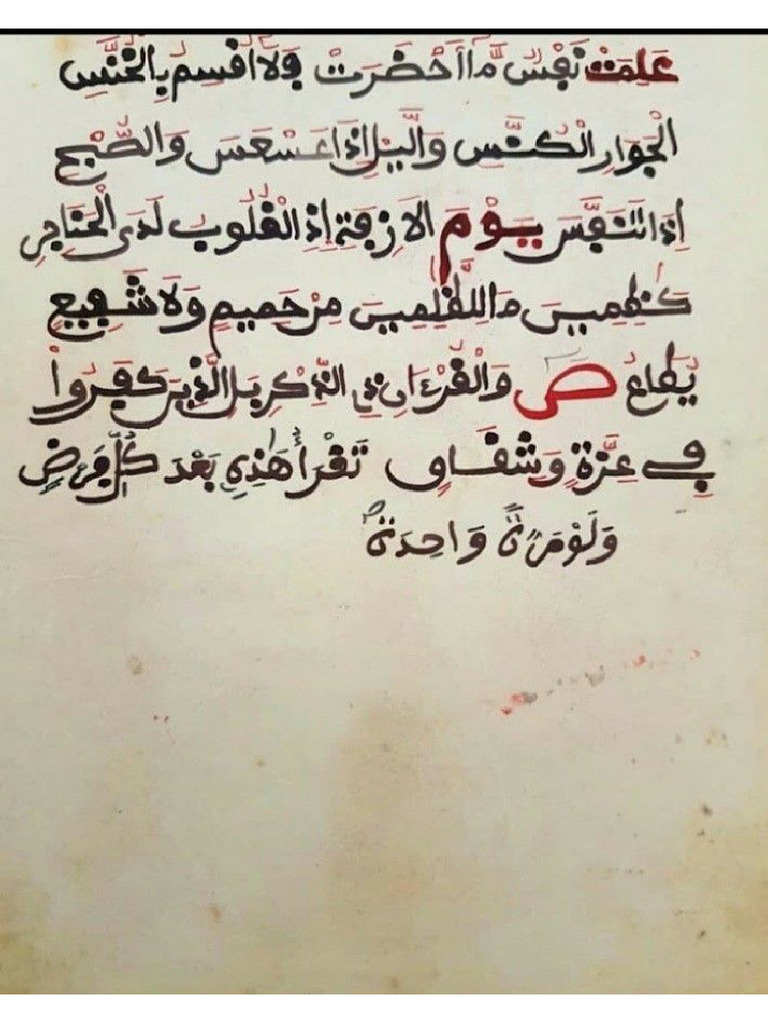 عَلِمَتْ نَفْسٌ مَّا أَحْضَرَتْ فَلَا أُقْسِمُ بِالْخُنَّسِ
الْجَوَارِ الْكُنَّسِ وَالَّيْلِ إِذَا عَسْعَسَ وَالصُّبْحِ
إِذَا تَنَفَّسَ يَوْمَ الَازِفَةِ إِذِ الْقُلُوبُ لَدَى الْحَنَاجِرِ
كَٰظِمِينَ مَا لِلظَّٰلِمِينَ مِنْ حَمِيمٍ وَلَا شَفِيعٍ
يُطَاعُ صٓ وَالْقُرْءَانِ ذِي الذِّكْرِ بَلِ الَّذِينَ كَفَرُوا
فِي عِزَّةٍ وَشِقَاقٍ تَقْرَأُ هَٰذِهِ بَعْدَ كُلِّ فَرْضٍ
وَلَوْ مَرَّةً وَاحِدَةً